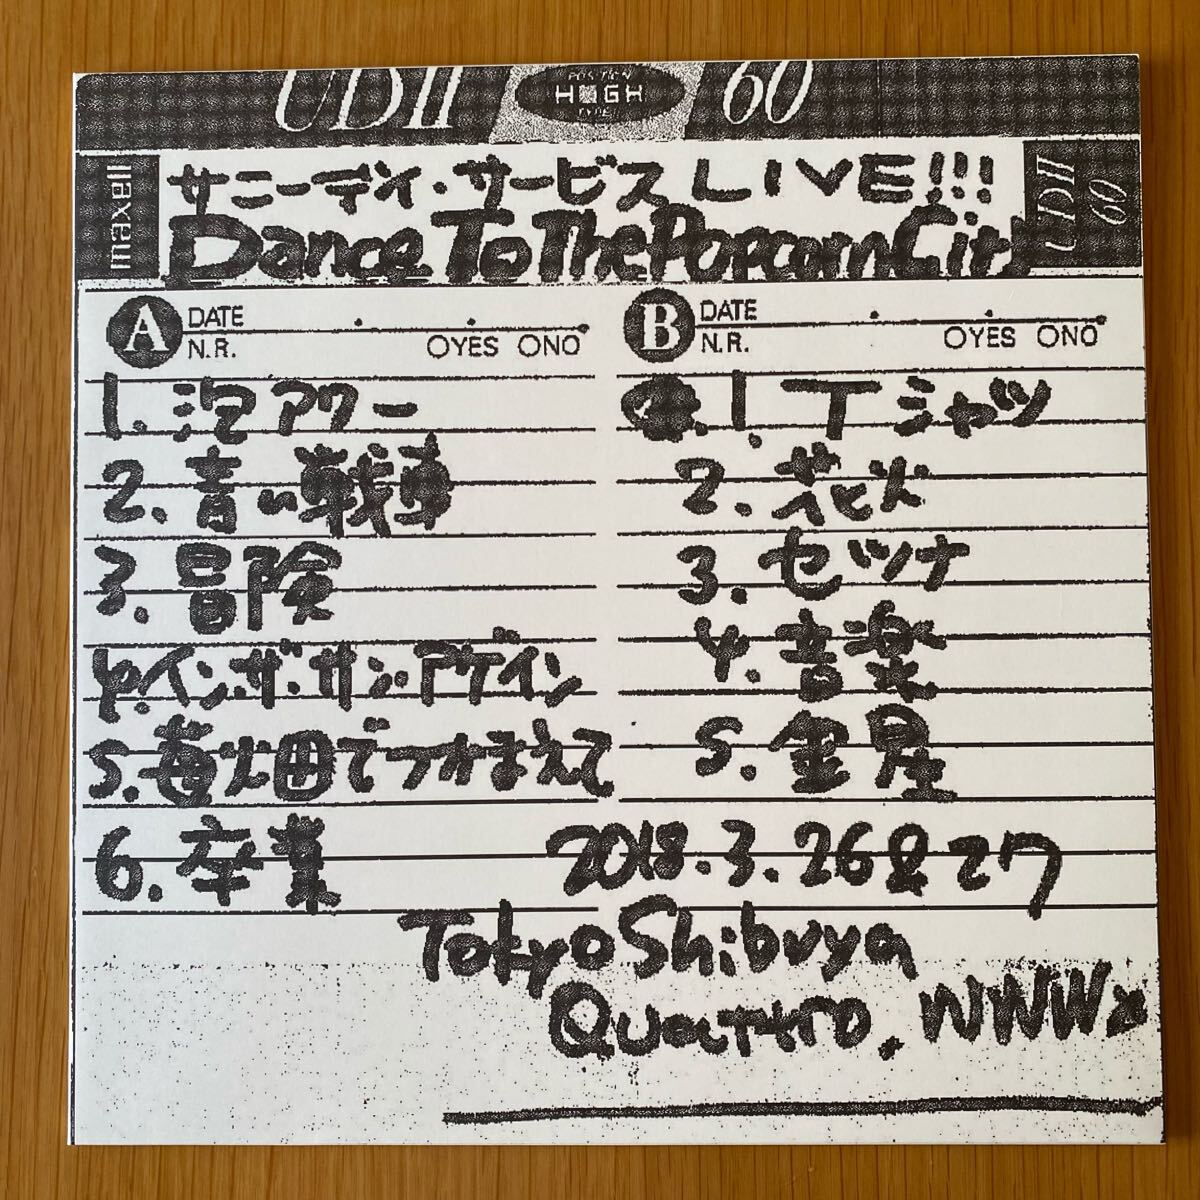 UDII POSITION HIGH TYPE 60
maxell
サニーデイ・サービス LIVE!!!
Dance To The Popcorn City
UDII 60
A DATE
N.R. OYES ONO
1. 泡アワー
2. 青い戦車
3. 冒険
4. イン・ザ・サン・アゲイン
5. 苺畑でつかまえて
6. 卒業
B DATE
N.R. OYES ONO
1. Tシャツ
2. 花火
3. セツナ
4. 音楽
5. 金星
2018.3.26&27
Tokyo Shibuya
Quattro, WWWX